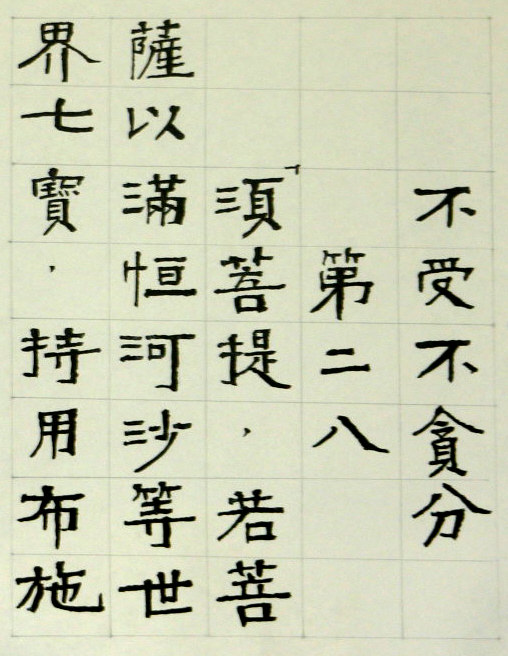 不受不貪分
第二八
「須菩提，若菩
薩以滿恒河沙等世
界七寶，持用布施